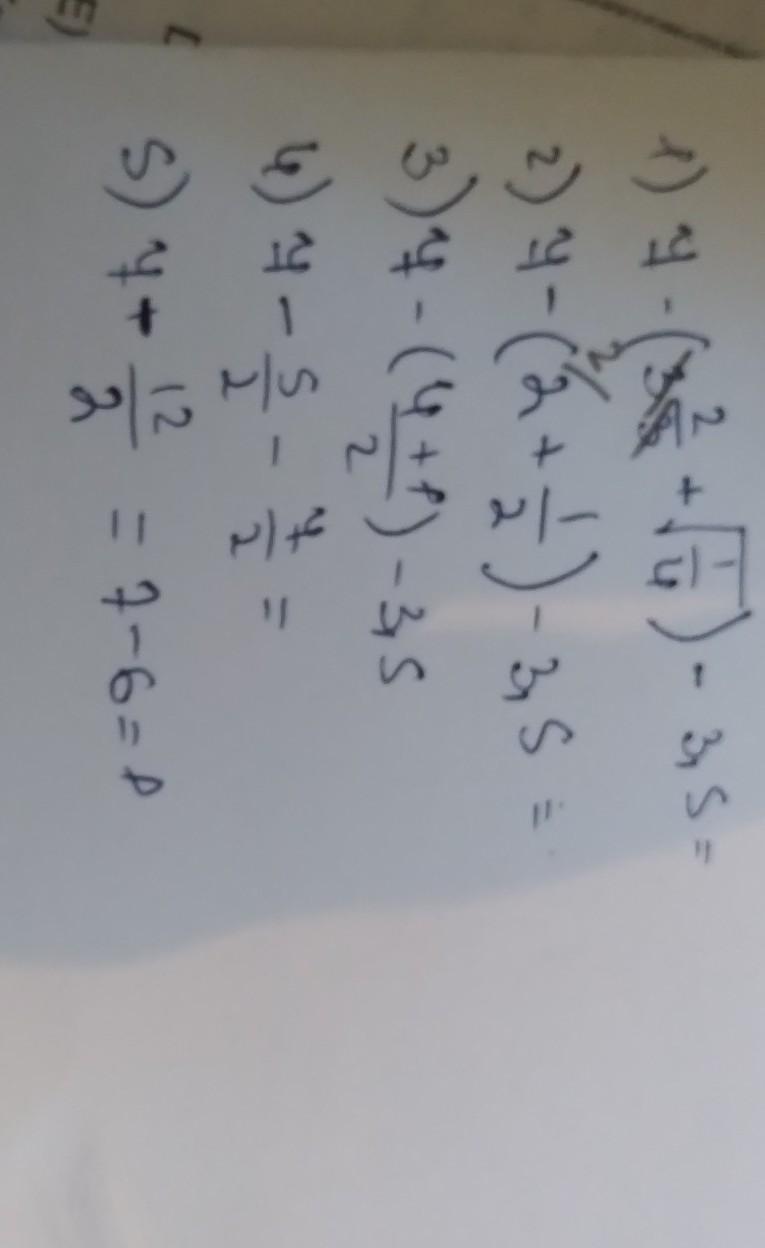 1) 7 - (2 + √1/4) - 3,5 =
2) 7 - (2 + 1/2) - 3,5 =
3) 7 - (4+1/2) - 3,5
4) 7 - 5/2 - 7/2 =
5) 7 - 12/2 = 7 - 6 = 1
E)